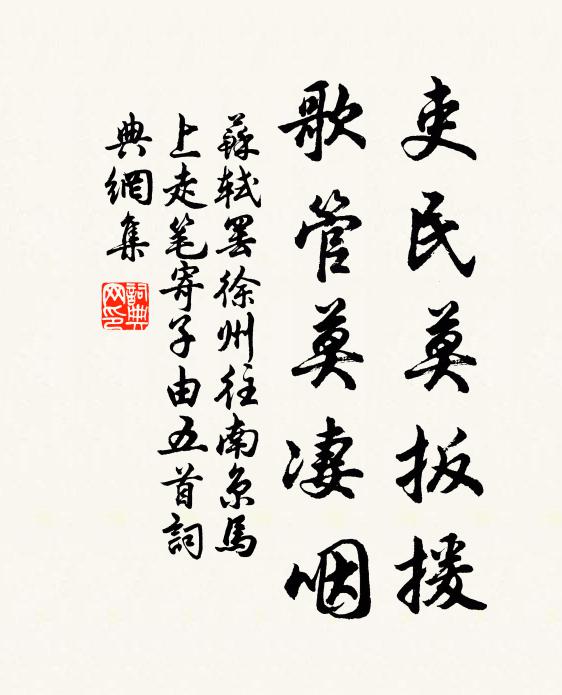 吏民莫扳援
歌管莫凄咽
蘇軾罢徐州往南京馬
上走笔寄子由五首詞
典網集
詞典
网印